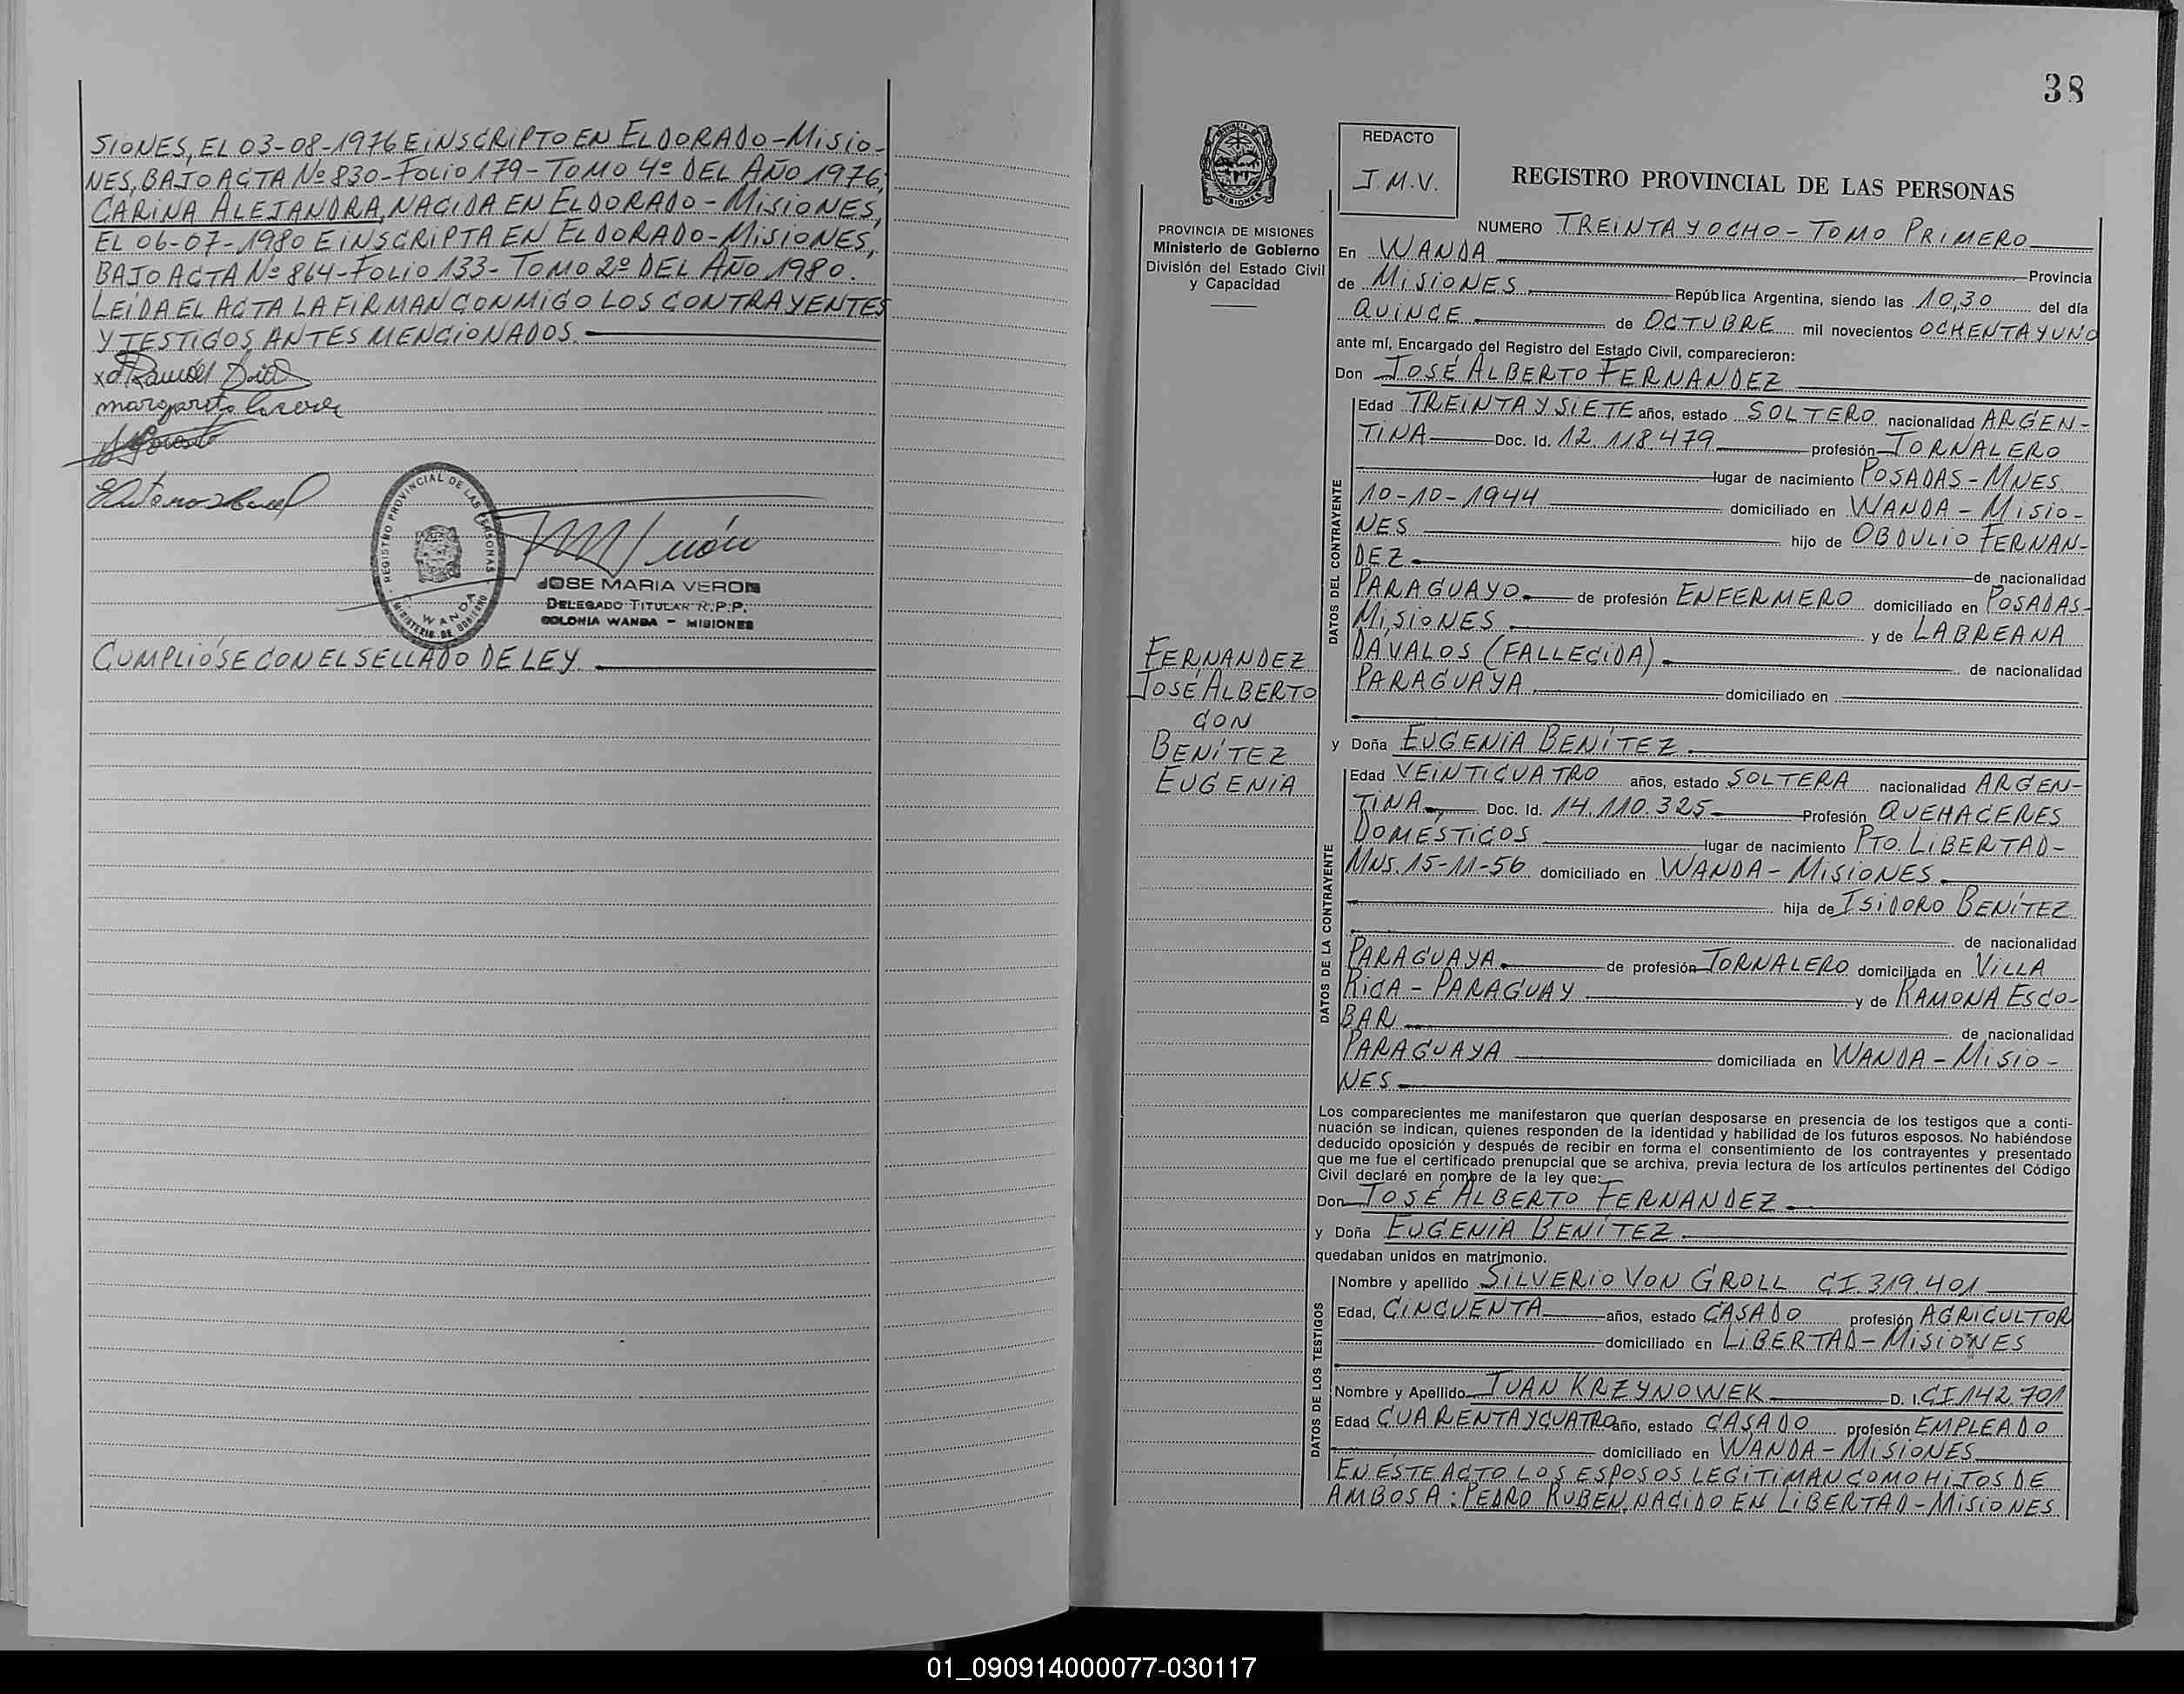 SIONES, EL 03-08-1976 E INSCRIPTO EN ELDORADO-MISIO-
NES, BAJO ACTA Nº 830-FOLIO 179-TOMO 4º DEL AÑO 1976,
CARINA ALEJANDRA, NACIDA EN ELDORADO-MISIONES,
EL 06-07-1980 E INSCRIPTA EN ELDORADO-MISIONES,
BAJO ACTA Nº 864-FOLIO 133-TOMO 2º DEL AÑO 1980.
LEÍDA EL ACTA LA FIRMAN CONMIGO LOS CONTRAYENTES
Y TESTIGOS ANTES MENCIONADOS.
REGISTRO PROVINCIAL DE LAS PERSONAS
WANDA
MINISTERIO DE GOBIERNO
JOSE MARIA VERON
DELEGADO TITULAR R.P.P.
COLONIA WANDA - MISIONES
CUMPLIÓSE CON EL SELLADO DE LEY.
38
PROVINCIA DE MISIONES
Ministerio de Gobierno
División del Estado Civil
y Capacidad
REDACTO
J.M.V.
REGISTRO PROVINCIAL DE LAS PERSONAS
NUMERO TREINTA Y OCHO - TOMO PRIMERO
En WANDA Provincia
de MISIONES República Argentina, siendo las 10,30 del día
QUINCE de OCTUBRE mil novecientos OCHENTA Y UNO
ante mí, Encargado del Registro del Estado Civil, comparecieron:
Don JOSÉ ALBERTO FERNANDEZ
DATOS DEL CONTRAYENTE
Edad TREINTA Y SIETE años, estado SOLTERO nacionalidad ARGEN-
TINA Doc. Id. 12.118.479 profesión JORNALERO
lugar de nacimiento POSADAS-MNES.
10-10-1944 domiciliado en WANDA-MISIO-
NES hijo de OBDULIO FERNAN-
DEZ de nacionalidad
PARAGUAYO de profesión ENFERMERO domiciliado en POSADAS-
MISIONES y de LABREANA
DAVALOS (FALLECIDA) de nacionalidad
PARAGUAYA domiciliado en
FERNANDEZ
JOSÉ ALBERTO
CON
BENÍTEZ
EUGENIA
y Doña EUGENIA BENÍTEZ
DATOS DE LA CONTRAYENTE
Edad VEINTICUATRO años, estado SOLTERA nacionalidad ARGEN-
TINA Doc. Id. 14.110.325 Profesión QUEHACERES
DOMÉSTICOS lugar de nacimiento PTO. LIBERTAD-
MNS. 15-11-56 domiciliado en WANDA-MISIONES
hija de ISIDORO BENÍTEZ
de nacionalidad
PARAGUAYA de profesión JORNALERO domiciliada en VILLA
RICA-PARAGUAY y de RAMONA ESCO-
BAR de nacionalidad
PARAGUAYA domiciliada en WANDA-MISIO-
NES
Los comparecientes me manifestaron que querían desposarse en presencia de los testigos que a conti-
nuación se indican, quienes responden de la identidad y habilidad de los futuros esposos. No habiéndose
deducido oposición y después de recibir en forma el consentimiento de los contrayentes y presentado
que me fue el certificado prenupcial que se archiva, previa lectura de los artículos pertinentes del Código
Civil declaré en nombre de la ley que:
Don JOSÉ ALBERTO FERNANDEZ
y Doña EUGENIA BENÍTEZ
quedaban unidos en matrimonio.
DATOS DE LOS TESTIGOS
Nombre y apellido SILVERIO VON GROLL CI. 319.401
Edad, CINCUENTA años, estado CASADO profesión AGRICULTOR
domiciliado en LIBERTAD-MISIONES
Nombre y Apellido JUAN KRZYNOWEK D. I. CI 142.701
Edad CUARENTA Y CUATRO año, estado CASADO profesión EMPLEADO
domiciliado en WANDA-MISIONES
EN ESTE ACTO LOS ESPOSOS LEGITIMAN COMO HIJOS DE
AMBOS A: PEDRO RUBEN, NACIDO EN LIBERTAD-MISIONES
01_090914000077-030117